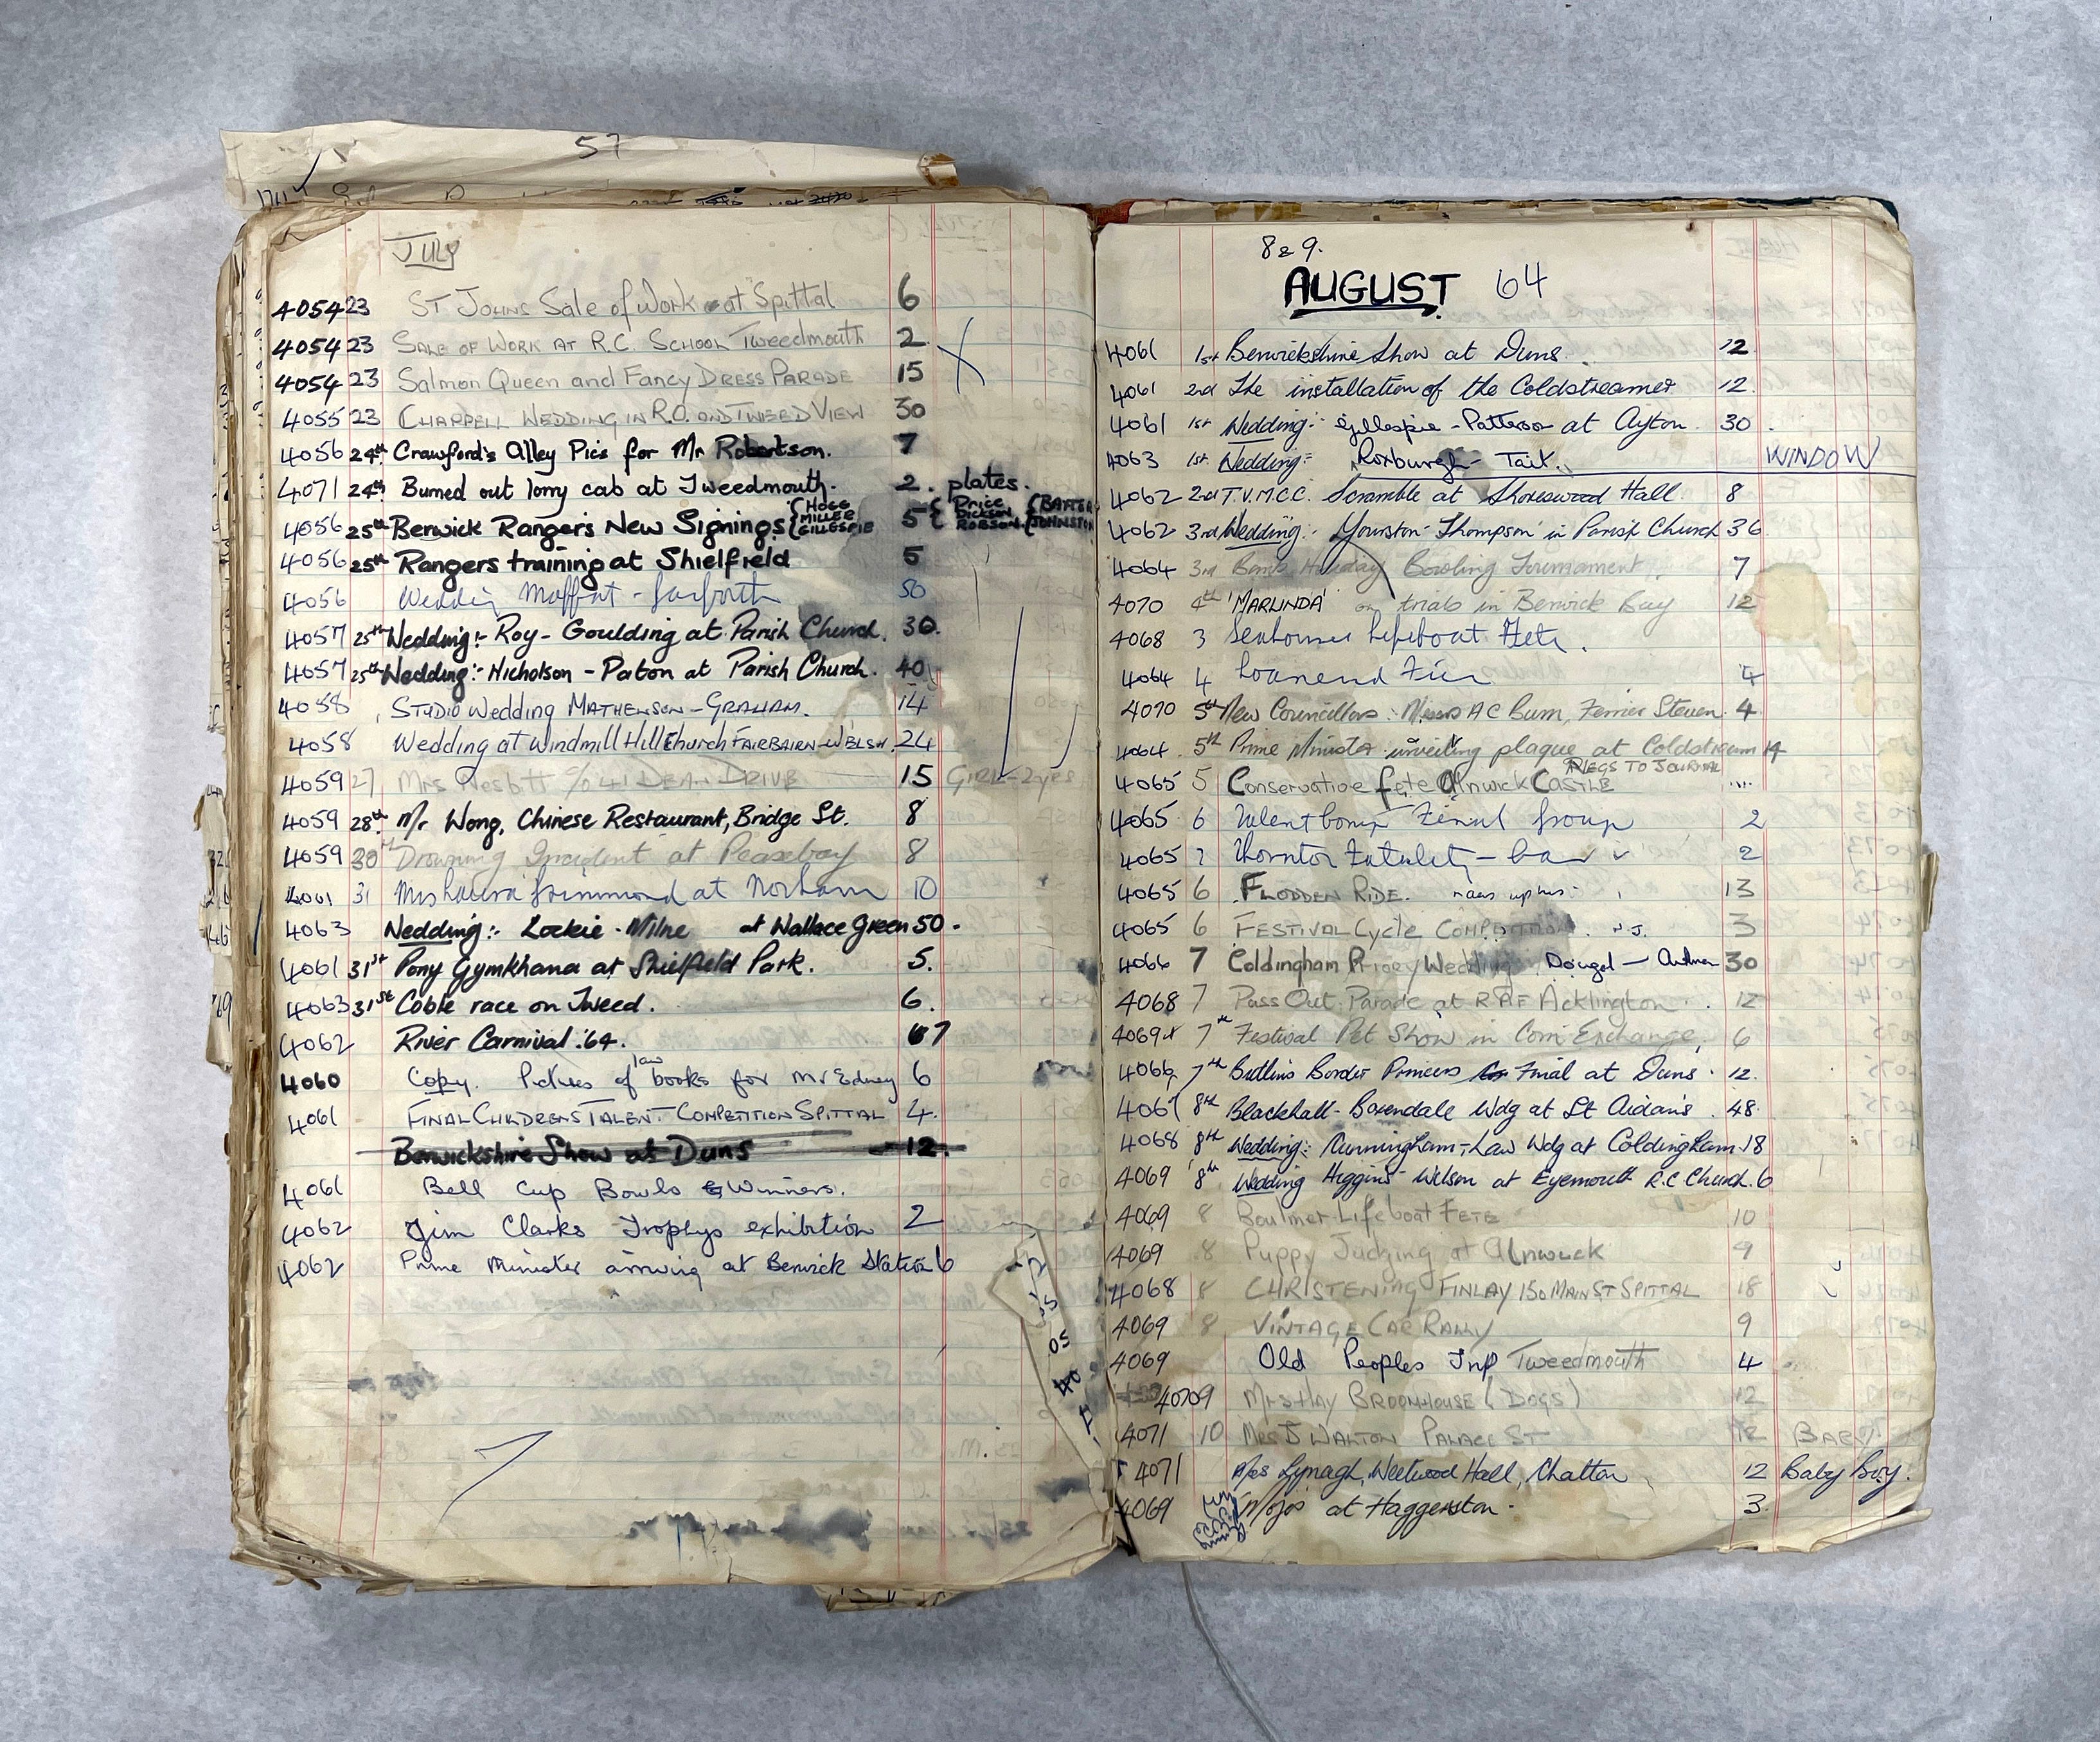 57
July
4054 23 ST JOHNS Sale of Work at Spittal 6
4054 23 SALE OF WORK AT R.C. SCHOOL TWEEDMOUTH 2
4054 23 Salmon Queen and FANCY DRESS PARADE 15
4055 23 CHAPPELL WEDDING IN R.C. AND TWEED VIEW 30
4056 24th Crawford's Alley Pics for Mr Robertson. 7
4071 24th Burned out lorry cab at Tweedmouth. 2. plates.
4056 25th Berwick Rangers New Signings { HOGG MILLER GILLESPIE 5 { Price Dickson Robson { BAXTER JOHNSTON
4056 25th Rangers training at Shielfield 5
4056 Wedding Moffat - 50
4057 25th Wedding:- Roy - Goulding at Parish Church. 30.
4057 25th Wedding:- Nicholson - Paton at Parish Church. 40
4058 STUDIO Wedding MATHEWSON - GRAHAM. 14
4058 Wedding at Windmill Hill Church FAIRBAIRN - WELSH. 24
4059 27 Mrs Nesbitt c/o 41 DEAN DRIVE 15 GIRL - 2 yrs
4059 28th Mr Wong, Chinese Restaurant, Bridge St. 8
4059 30th Drowning Incident at Peasebay 8
4061 31 Mrs Drummond at Norham 10
4063 Wedding:- Lockie - Milne at Wallace Green 50.
4061 31st Pony Gymkhana at Shielfield Park. 5.
4063 31st Coble race on Tweed. 6.
4062 River Carnival '64. 67
4060 Copy. Pictures of law books for Mr Edney 6
4061 FINAL CHILDRENS TALENT COMPETITION SPITTAL 4.
Berwickshire Show at Duns 12.
4061 Bell Cup Bowls Winners.
4062 Jim Clarks Trophys exhibition 2
4062 Prime Minister arriving at Berwick Station 6
8 & 9.
AUGUST 64
4061 1st Berwickshire Show at Duns. 12.
4061 2nd The installation of the Coldstreamer 12.
4061 1st Wedding:- Gillespie - Patterson at Ayton. 30.
4063 1st Wedding:- Roxburgh - Tait. WINDOW
4062 2nd T.V.M.C.C. Scramble at Shoreswood Hall. 8
4062 3rd Wedding:- Yourston - Thompson in Parish Church 36
4064 3rd Bank Holiday Bowling Tournament. 7
4070 4th 'MARLINDA' on trials in Berwick Bay 12
4068 3 Seahouses Lifeboat Fete.
4064 4 Loanend 4
4070 5th New Councillors: Messrs A C Burn, Ferrier Steven. 4.
4064 5th Prime Minister unveiling plaque at Coldstream 14
4065 5 Conservative fete Alnwick CASTLE NEGS TO JOURNAL ....
4065 6 Talent Comp Final Group 2
4065 7 Thornton Fatality - Car 2
4065 6 FLODDEN RIDE. 13
4065 6 FESTIVAL Cycle COMPETITION. N.J. 3
4066 7 Coldingham Priory Wedding Dougal - 30
4068 7 Pass Out Parade at RAF Acklington. 12
4069 7th Festival Pet Show in Corn Exchange. 6
4066 7th Butlins Border Princess Final at Duns. 12.
4067 8th Blackhall - Baxendale Wdg at St Aidan's. 48.
4068 8th Wedding: Cunningham - Law Wdg at Coldingham. 18
4069 8th Wedding Higgins - Wilson at Eyemouth R.C Church. 6
4069 8 Boulmer Lifeboat FETE 10
4069 8 Puppy Judging at Alnwick 9
4068 8 CHRISTENING FINLAY 150 MAIN ST SPITTAL 18
4069 8 VINTAGE CAR RALLY 9
4069 Old Peoples Tweedmouth 4
40709 Mrs Hay BROOMHOUSE (DOGS) 12
4071 10 MRS J WALTON PALACE ST 12 BABY
4071 Mrs Lynagh, Weetwood Hall, Chatton, 12 Baby Boy.
4069 'Mojos' at Haggerston. 3.